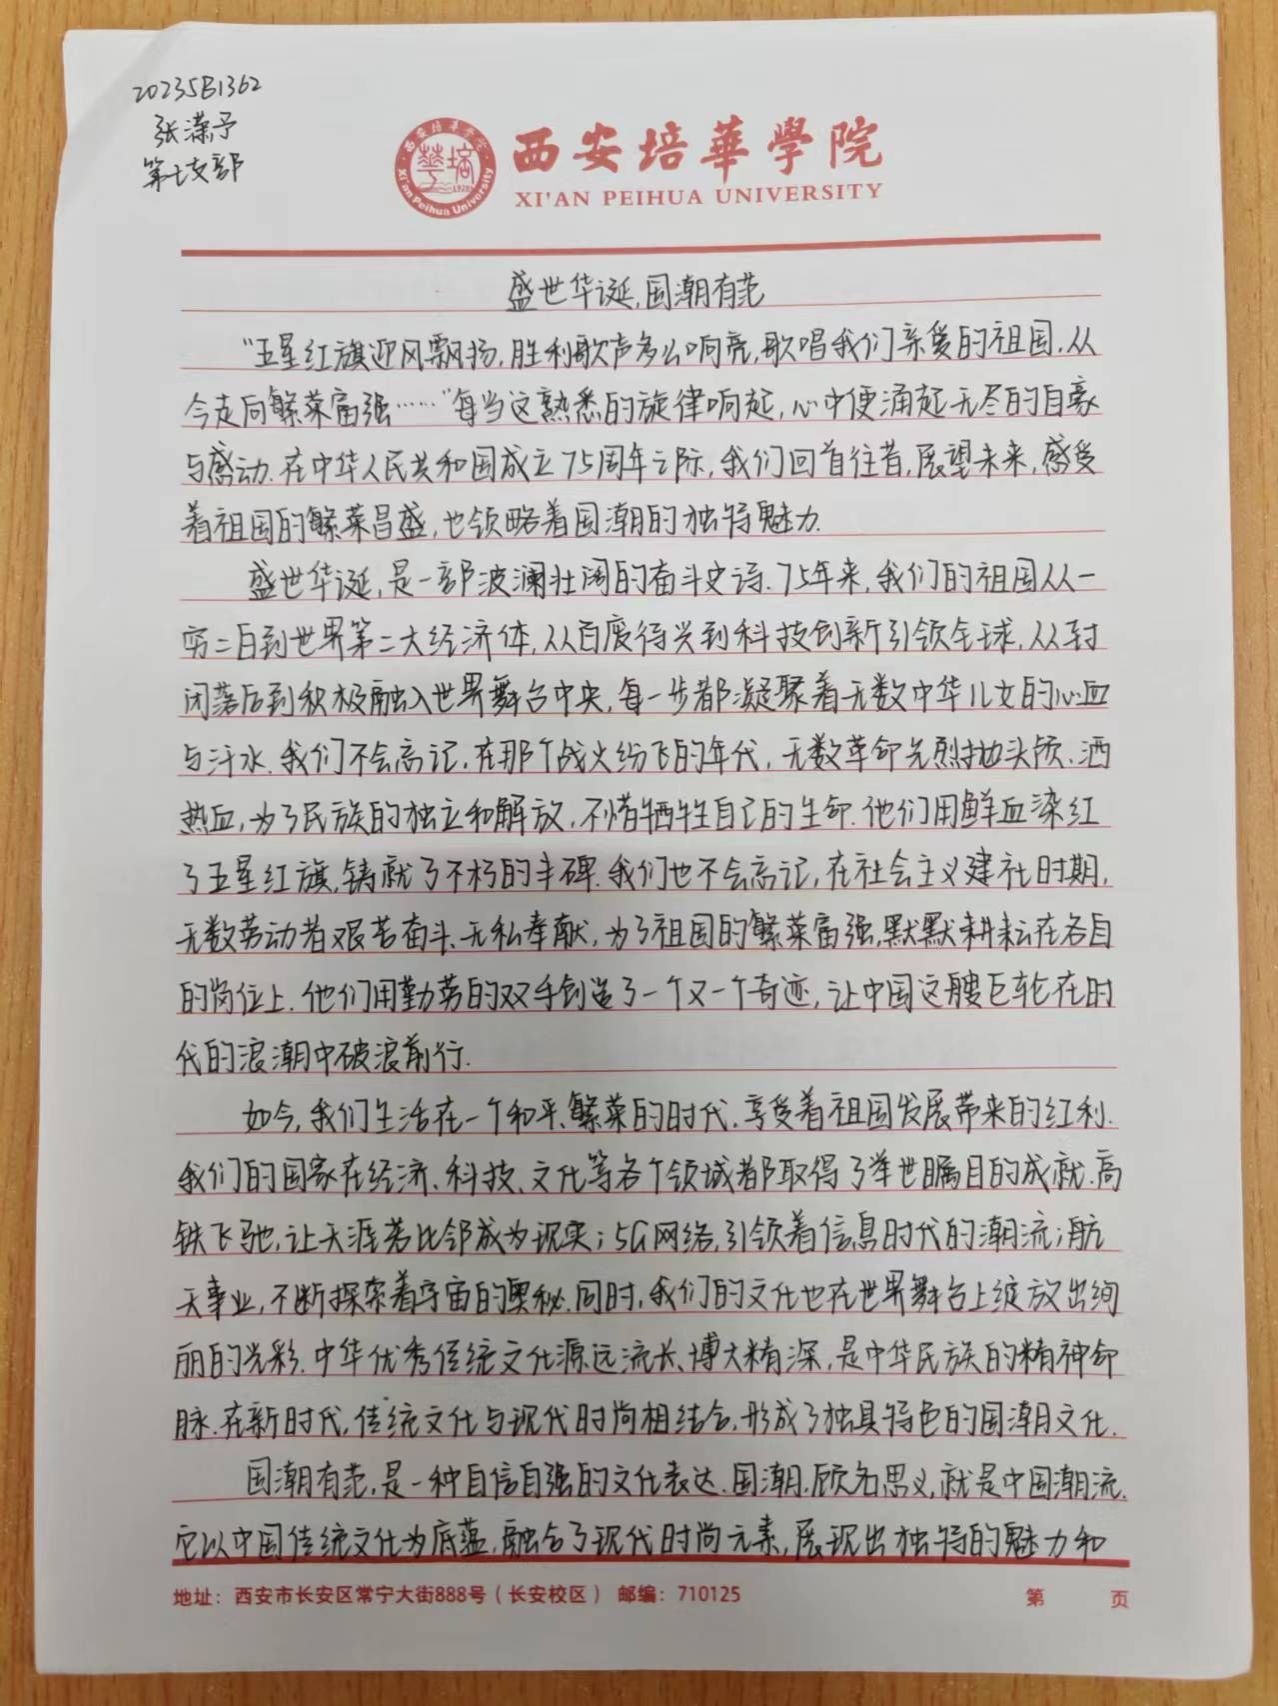 20235B1362
张潆予
第七支部
西安培華學院
XI'AN PEIHUA UNIVERSITY
西安培华学院
华培
1928
Xi'an Peihua University
盛世华诞,国潮有范
“五星红旗迎风飘扬,胜利歌声多么响亮,歌唱我们亲爱的祖国,从
今走向繁荣富强……”每当这熟悉的旋律响起,心中便涌起无尽的自豪
与感动.在中华人民共和国成立75周年之际,我们回首往昔,展望未来,感受
着祖国的繁荣昌盛,也领略着国潮的独特魅力.
盛世华诞,是一部波澜壮阔的奋斗史诗.75年来,我们的祖国从一
穷二白到世界第二大经济体,从百废待兴到科技创新引领全球,从封
闭落后到积极融入世界舞台中央,每一步都凝聚着无数中华儿女的心血
与汗水.我们不会忘记,在那个战火纷飞的年代,无数革命先烈抛头颅、洒
热血,为了民族的独立和解放,不惜牺牲自己的生命.他们用鲜血染红
了五星红旗,铸就了不朽的丰碑.我们也不会忘记,在社会主义建社时期,
无数劳动者艰苦奋斗、无私奉献,为了祖国的繁荣富强,默默耕耘在各自
的岗位上.他们用勤劳的双手创造了一个又一个奇迹,让中国这艘巨轮在时
代的浪潮中破浪前行.
如今,我们生活在一个和平、繁荣的时代,享受着祖国发展带来的红利.
我们的国家在经济、科技、文化等各个领域都取得了举世瞩目的成就.高
铁飞驰,让天涯若比邻成为现实;5G网络,引领着信息时代的潮流;航
天事业,不断探索着宇宙的奥秘.同时,我们的文化也在世界舞台上绽放出绚
丽的光彩.中华优秀传统文化源远流长、博大精深,是中华民族的精神命
脉.在新时代,传统文化与现代时尚相结合,形成了独具特色的国潮文化.
国潮有范,是一种自信自强的文化表达.国潮,顾名思义,就是中国潮流.
它以中国传统文化为底蕴,融合了现代时尚元素,展现出独特的魅力和
地址:西安市长安区常宁大街888号(长安校区) 邮编:710125
第 页